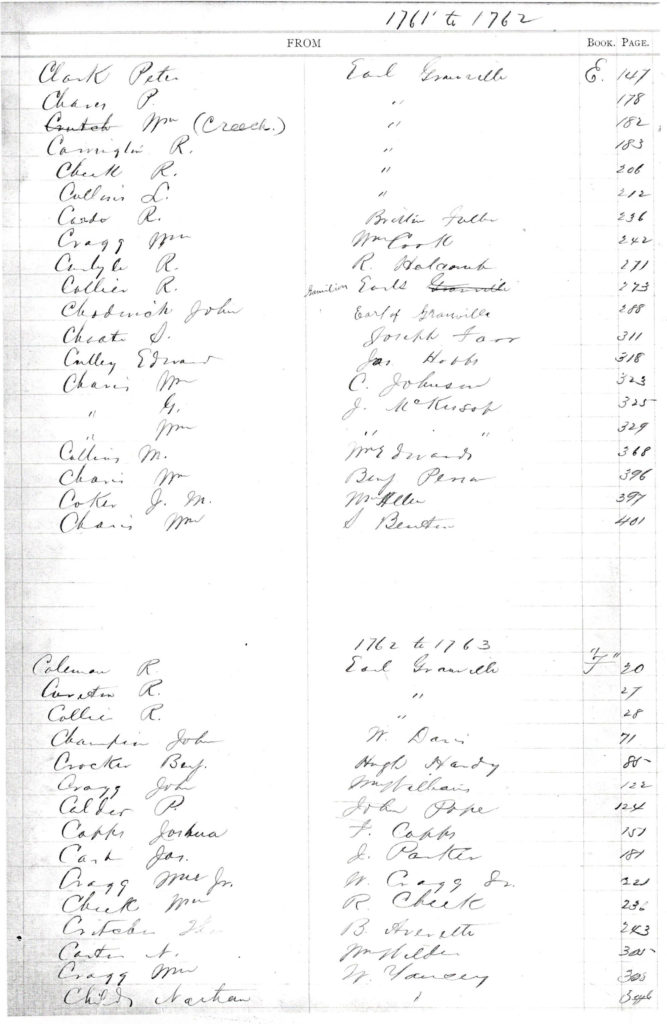 1761 to 1762
FROM BOOK. PAGE.
Clark Peter Earl Granville E. 147
Chaves P. " 178
Crutch Wm (Creech.) " 182
R. " 183
Cheek R. " 206
Collins L. " 212
R. 236
Cragg Wm Wm Cook 242
Carlyle R. R. Holcomb 271
Collier R. Earls Granville 273
Chedwick John Earl of Granville 288
Cheate S. Joseph Farr 311
Culley Edward Jas Hobbs 318
Chavis Wm C. Johnson 323
" G. J. McKissop 325
" Wm " " 329
Collins M. Wm Edwards 368
Chavis Wm Benj Person 396
Coker J. M. Wm Allen 397
Chavis Wm S Benton 401
1762 to 1763
Coleman R. Earl Granville "F" 20
R. " 27
Collie R. " 28
Champion John W. Davis 71
Crocker Benj. Hugh Handy 85
Cragg John Wm Williams 122
Calder P. John Pope 124
Capps Joshua F. Capps 151
Cash Jas. J. Parker 181
Cragg Wm Jr. W. Cragg Sr. 221
Cheek Wm R. Cheek 236
Critcher B. Averette 243
Carter N. Wm Wilder 305
Cragg Wm W. Yancey 308
Childs Nathan " 346